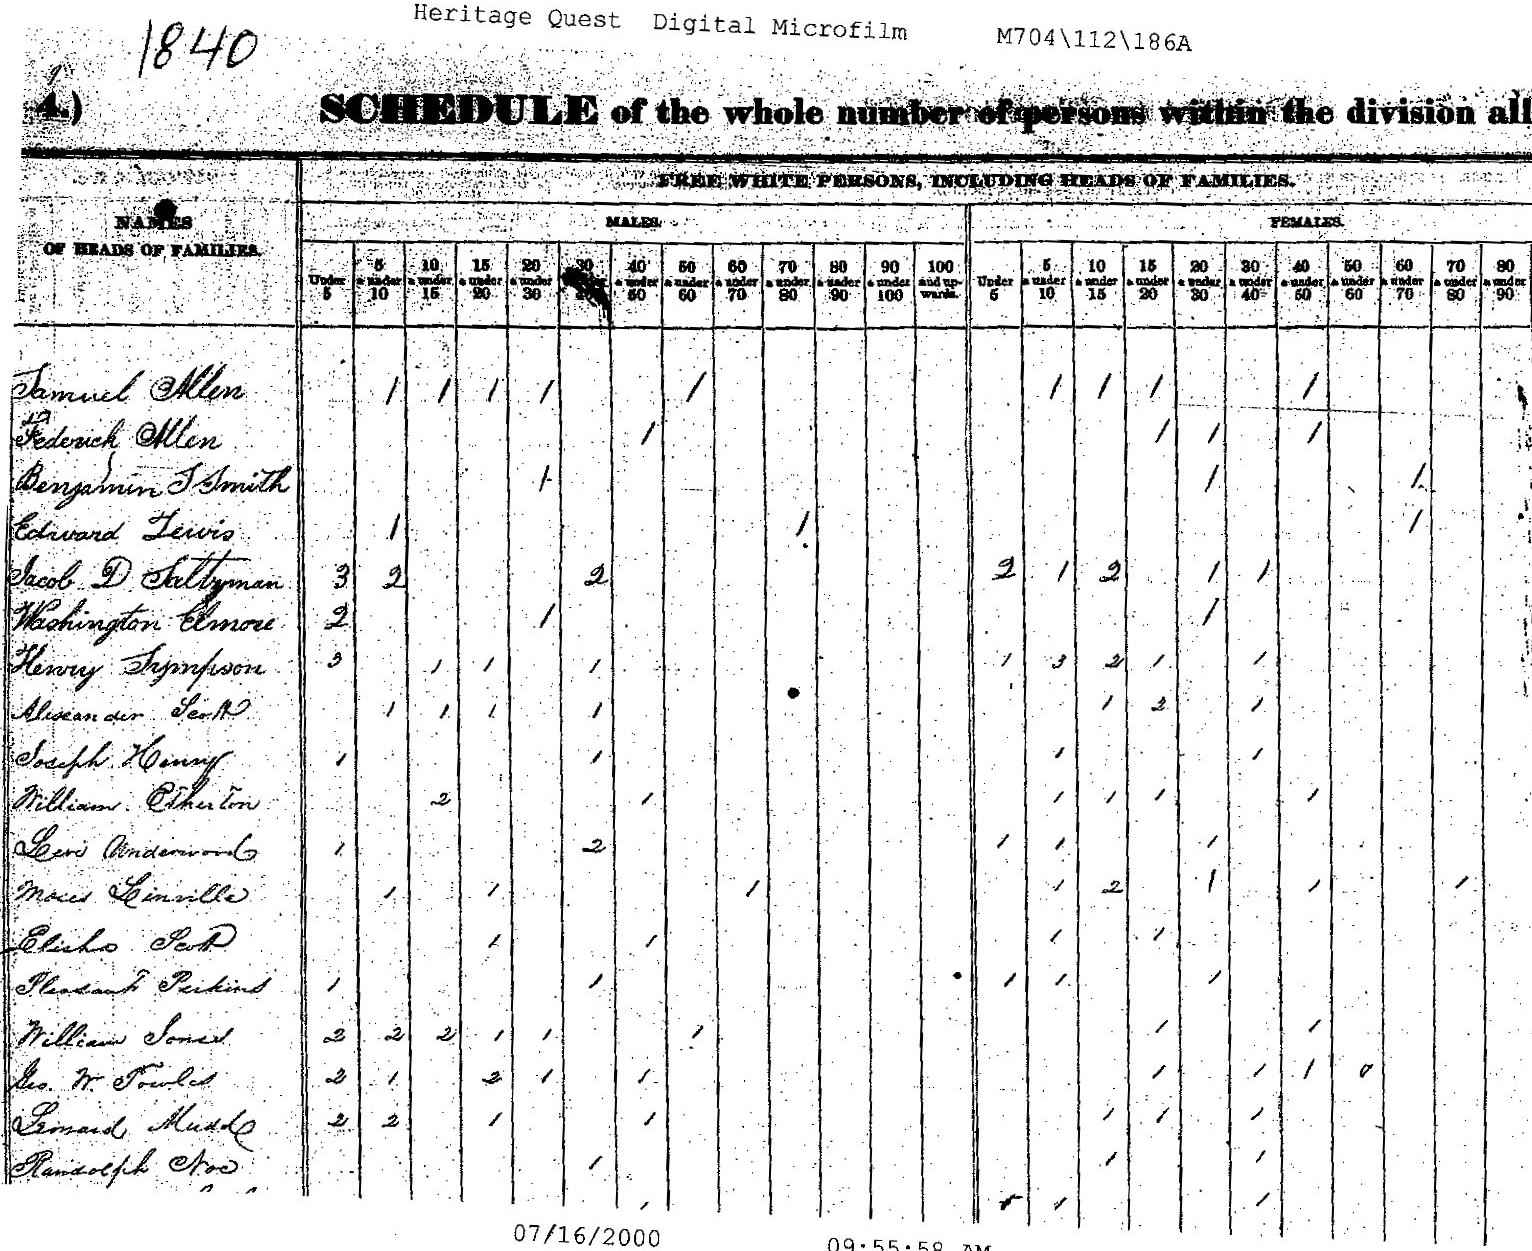 Heritage Quest Digital Microfilm M704\112\186A
1840
4.) SCHEDULE of the whole number of persons within the division all
FREE WHITE PERSONS, INCLUDING HEADS OF FAMILIES.
NAMES
OF HEADS OF FAMILIES.
MALES. FEMALES.
Under 5 5 & under 10 10 & under 15 15 & under 20 20 & under 30 30 40 & under 50 50 & under 60 60 & under 70 70 & under 80 80 & under 90 90 & under 100 100 and upwards. Under 5 5 & under 10 10 & under 15 15 & under 20 20 & under 30 30 & under 40 40 & under 50 50 & under 60 60 & under 70 70 & under 80 80 & under 90
Samuel Allen 1 1 1 1 1 1 1 1 1
Federick Allen 1 1 1 1
Benjamin T Smith 1 1 1
Edward Lewis 1 1 1
Jacob D Saltzman 3 2 2 2 1 2 1 1
Washington Elmore 2 1 1
Henry Sympson 3 1 1 1 1 3 2 1 1
Alexander Scott 1 1 1 1 1 2 1
Joseph Henry 1 1 1 1
William Etherton 2 1 1 1 1 1
Levi Underwood 1 2 1 1 1
Moses Linville 1 1 1 1 2 1 1 1
Elisha Scott 1 1 1 1
Pleasant Perkins 1 1 1 1 1
William Jones 2 2 2 1 1 1 1 1
Geo. W. Fowles 2 1 2 1 1 1 1 1 0
Lenard Mudd 2 2 1 1 1 1 1
Randolph Noe 1 1 1
1 1 1
07/16/2000 09:55:58 AM